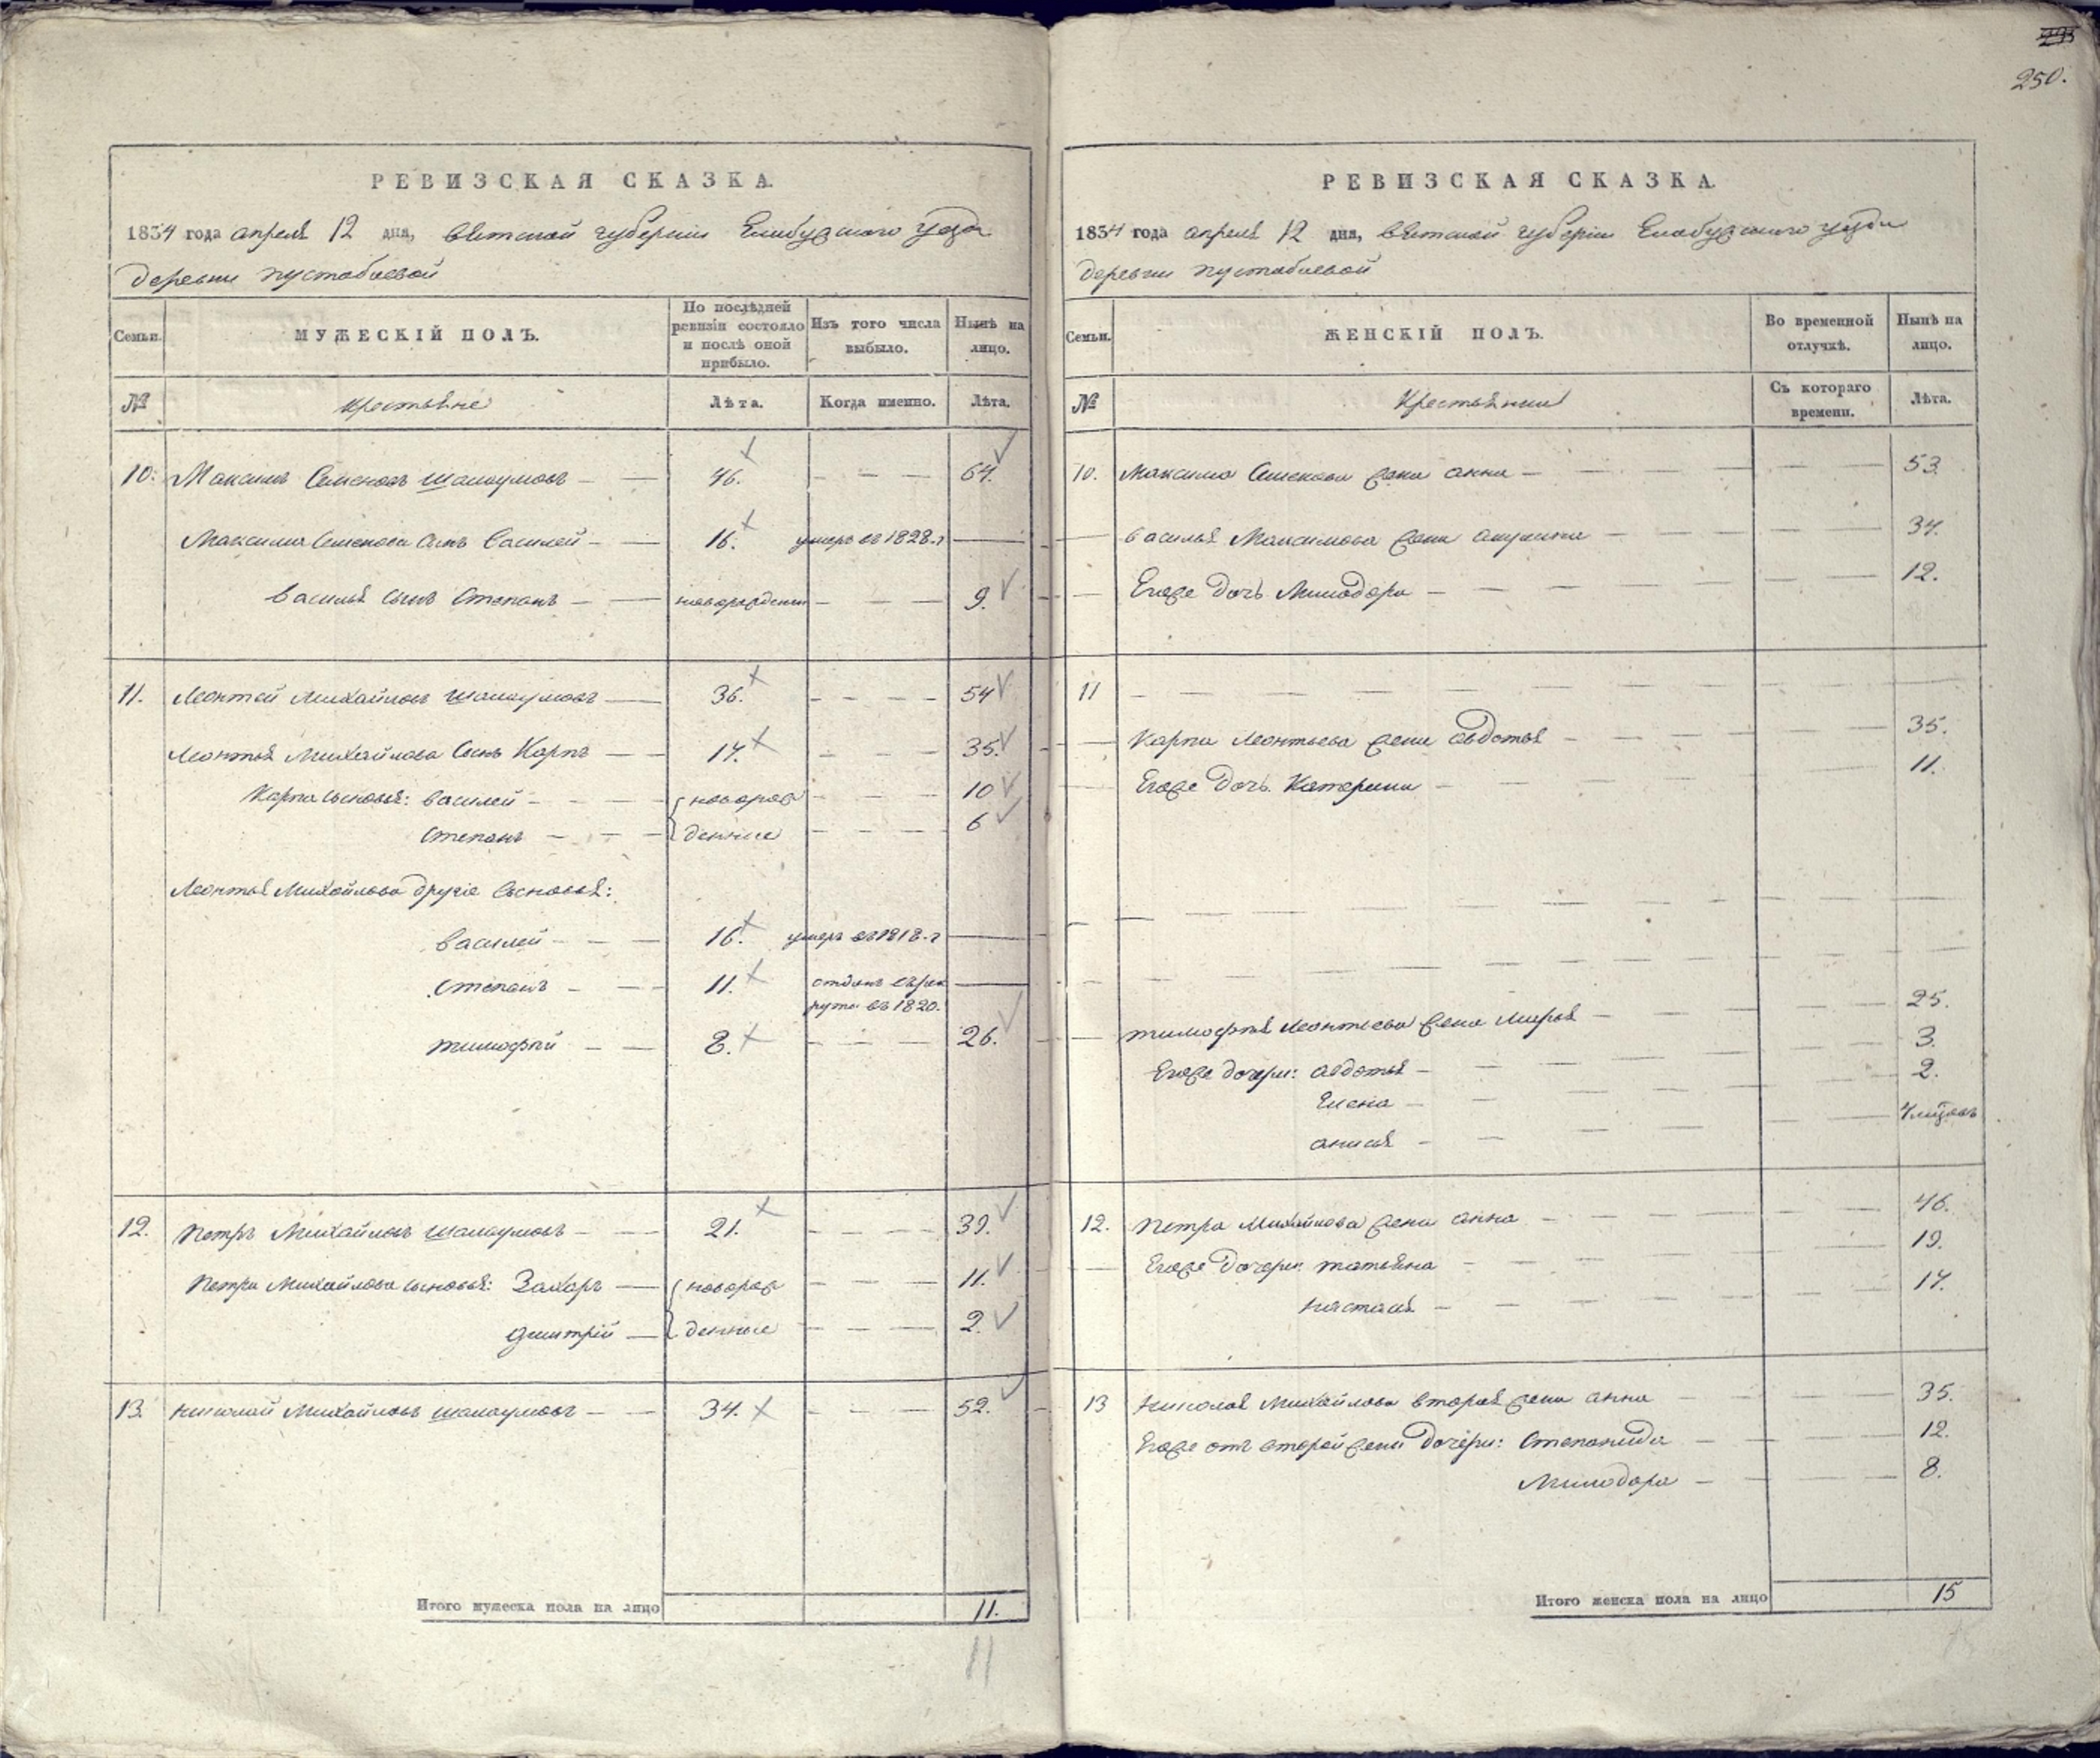 250.
РЕВИЗСКАЯ СКАЗКА.
1834 года апреля 12 дня, вятской губернии Елабужского уезда
деревни пустобаевой
Семьи.
МУЖЕСКІЙ ПОЛЪ.
По последней ревизіи состояло и после оной прибыло.
Изъ того числа выбыло.
Ныне на лицо.
№ крестьяне Лѣта. Когда именно. Лѣта.
10. Максимъ Семеновъ 46. 64.
Максима Семенова сынъ Василей 16. умеръ въ 1828-г
василья сынъ Степанъ новорожденн 9.
11. Леонтей Михайловъ 36. 54
Леонтья Михайлова Сынъ Карпъ 17. 35.
Карпа сыновья: василей новорож 10
степанъ денные 6
Леонтья Михайлова другіе сыновья:
василей 16. умеръ въ 1818-г
степанъ 11. отданъ въ рек
руты въ 1820.
тимофей 8. 26.
12. Петръ Михайловъ 21. 39.
Петра Михайлова сыновья: Захаръ новорож 11.
дмитрій денные 2.
13. николай Михайловъ 34. 52.
Итого мужеска пола на лицо 11.
11
РЕВИЗСКАЯ СКАЗКА.
1834 года апреля 12 дня, вятской губерніи Елабужского уезда
деревни пустобаевой
Семьи.
ЖЕНСКІЙ ПОЛЪ.
Во временной отлучкѣ.
Нынѣ на лицо.
№ Крестьянки Съ котораго времени. Лѣта.
10. Максима Семенова жена анна 53.
василья Максимова жена акулина 34.
Егоже дочь Милодора 12.
11
Карпа Леонтьева жена авдотья 35.
Егоже дочь Катерина 11.
тимофея Леонтьева жена Марья 25.
Егоже дочери: авдотья 3.
Елена 2.
анисья
12. Петра Михайлова жена анна 46.
Егоже дочери: татьяна 19.
настасья 17.
13 николая Михайлова вторая жена анна 35.
Егоже отъ второй жены дочери: Степанида 12.
Милодора 8.
Итого женска пола на лицо 15